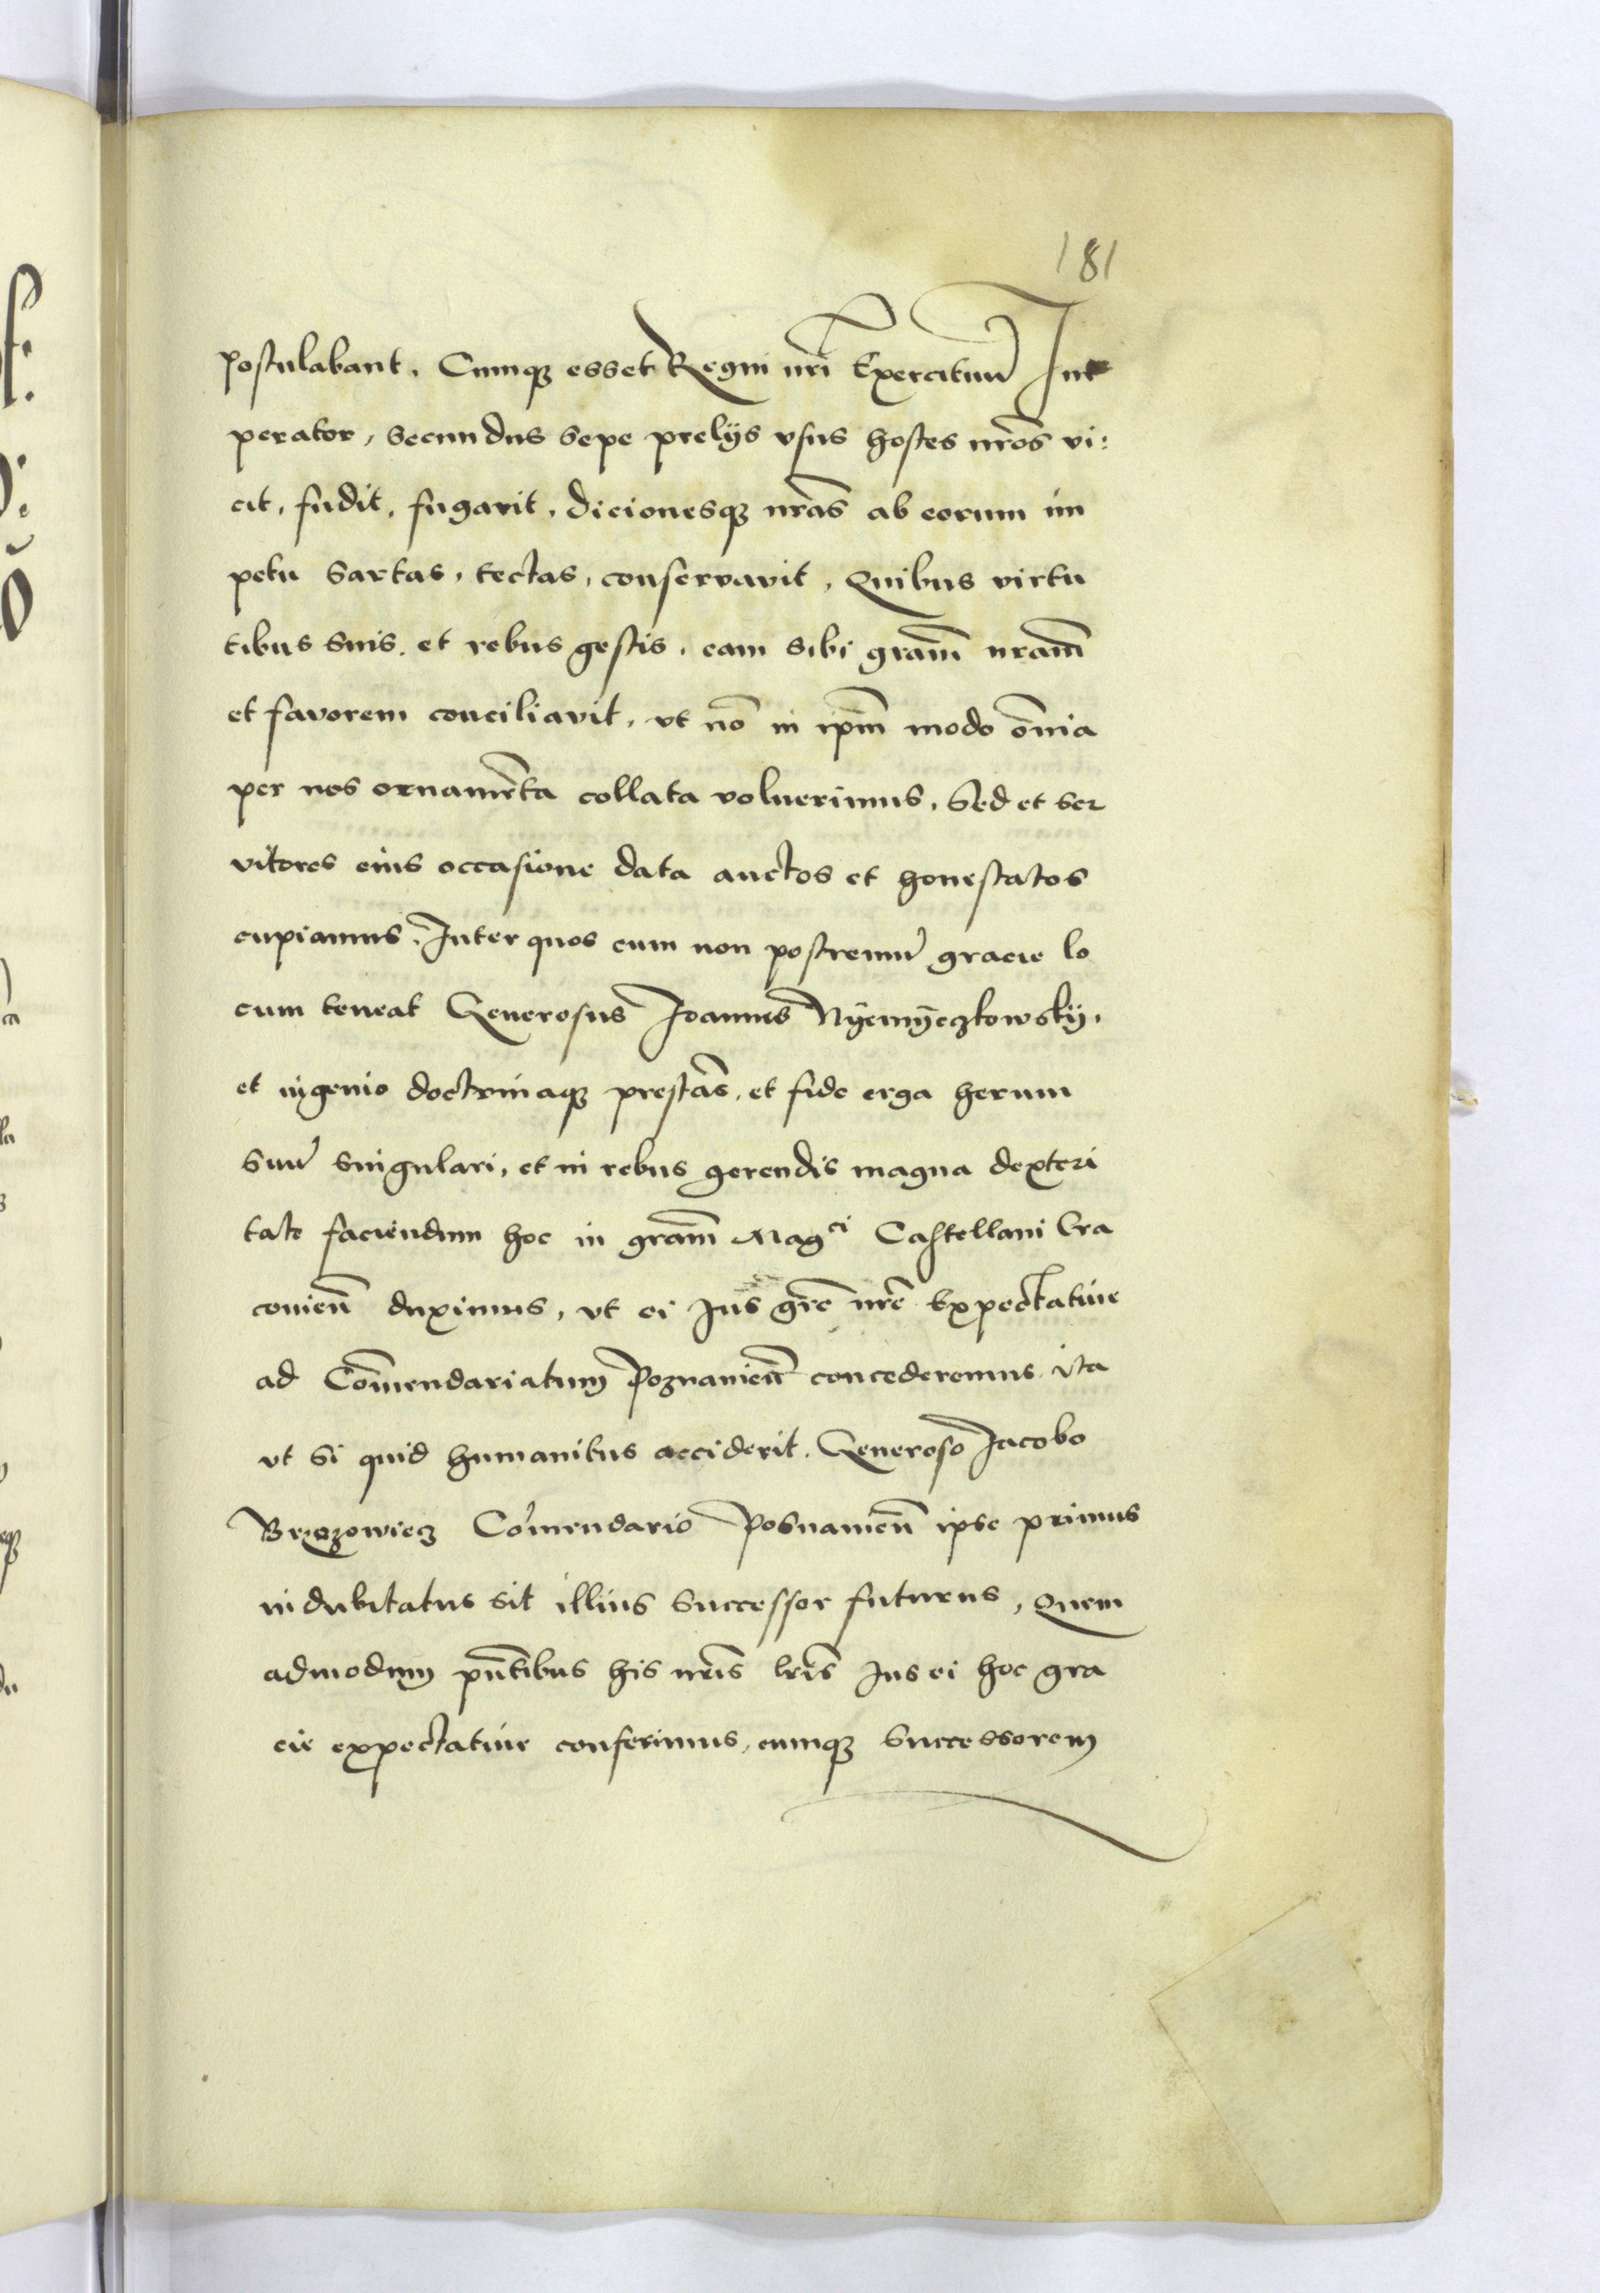 181
postulabant. Cumq3 esset Regni nri Exercituũ Im
perator, Secundus Sepe prelijs vsus hostes nros vi:
cit, fudit, fugavit, dicionesq3 nras ab eorum im
petu Sartas, tectas, conservavit, Quibus virtu
tibus Suis et rebus gestis, eam Sibi gram̃ nram̃
et favorem conciliavit, vt nõ in ipm̃ modo õnia
per nos ornamẽta collata voluerimus, Sed et Ser
vitores eius occasione data auctos et honestatos
cupiamus. Inter quos cum non postremũ gracie lo
cum teneat Generosus Joannes Nÿemÿeczkowskÿ,
et ingenio doctrinaq3 prestãs, et fide erga herum
Suũ Singulari, et in rebus gerendis magna dexteri
tate faciendum hoc in gram̃ Magci Castellani Cra
covieñ duximus, vt ei Jus grẽ nrẽ Expectative
ad Com̃endariatum Poznanieñ concederemus ita
vt Si quid humanitus acciderit. Generoso Jacobo
Brzozowicz Com̃endario Posnanieñ ipse primus
indubitatus sit illius Successor futurus, Quem
admodum pñtibus his nrĩs lrĩs Jus ei hoc gra
cie expectative conferimus, eumq3 Successorem